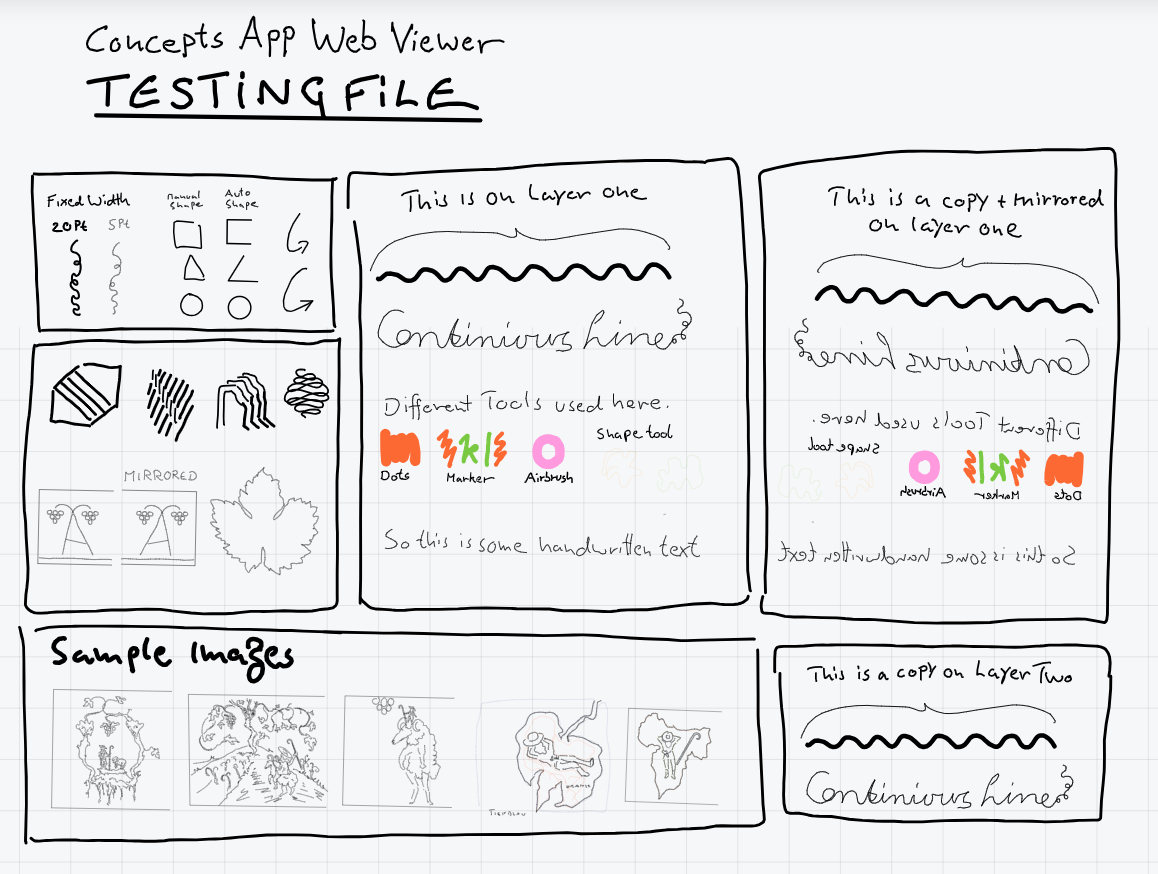 Concepts App Web Viewer
TESTING FILE
Fixed Width
20Pt 5Pt
manual shape
Auto shape
MIRRORED
This is on Layer one
Continiovs Line
Different Tools used here.
Shape tool
Dots Marker Airbrush
So this is some handwritten text
This is a copy + mirrored
on layer one
Continiovs Line
Different Tools used here.
Shape tool
Airbrush Marker Dots
So this is some handwritten text
Sample Images
This is a copy on Layer Two
Continiovs Line